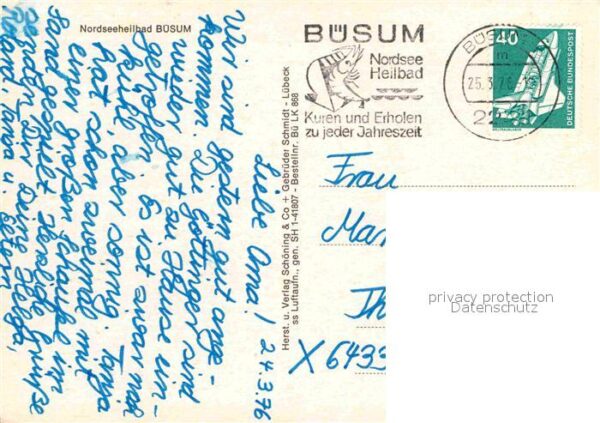 Nordseeheilbad BÜSUM
Liebe Oma! 24.3.76
Wir sind gestern gut ange-
kommen. Die Göttinger sind
wieder gut zu Hause ein-
getroffen. Es ist zwar noch
kalt aber sonnig. Tanja
hat schon zweimal mit
einer großen Schaufel im
Sand gespielt. Herzliche Grüße
Dein Helga,
Roland, Tanja u. Eltern
Herst. u. Verlag Schöning & Co + Gebrüder Schmidt - Lübeck
ss Luftaufn., gen. SH 1-41807 - Bestellnr. Bü LK 868
BÜSUM
Nordsee
Heilbad
Kuren und Erholen
zu jeder Jahreszeit
BÜSUM
m
25.3.76
22
40
DEUTSCHE BUNDESPOST
Frau
Mar
Th
X 6433
privacy protection
Datenschutz